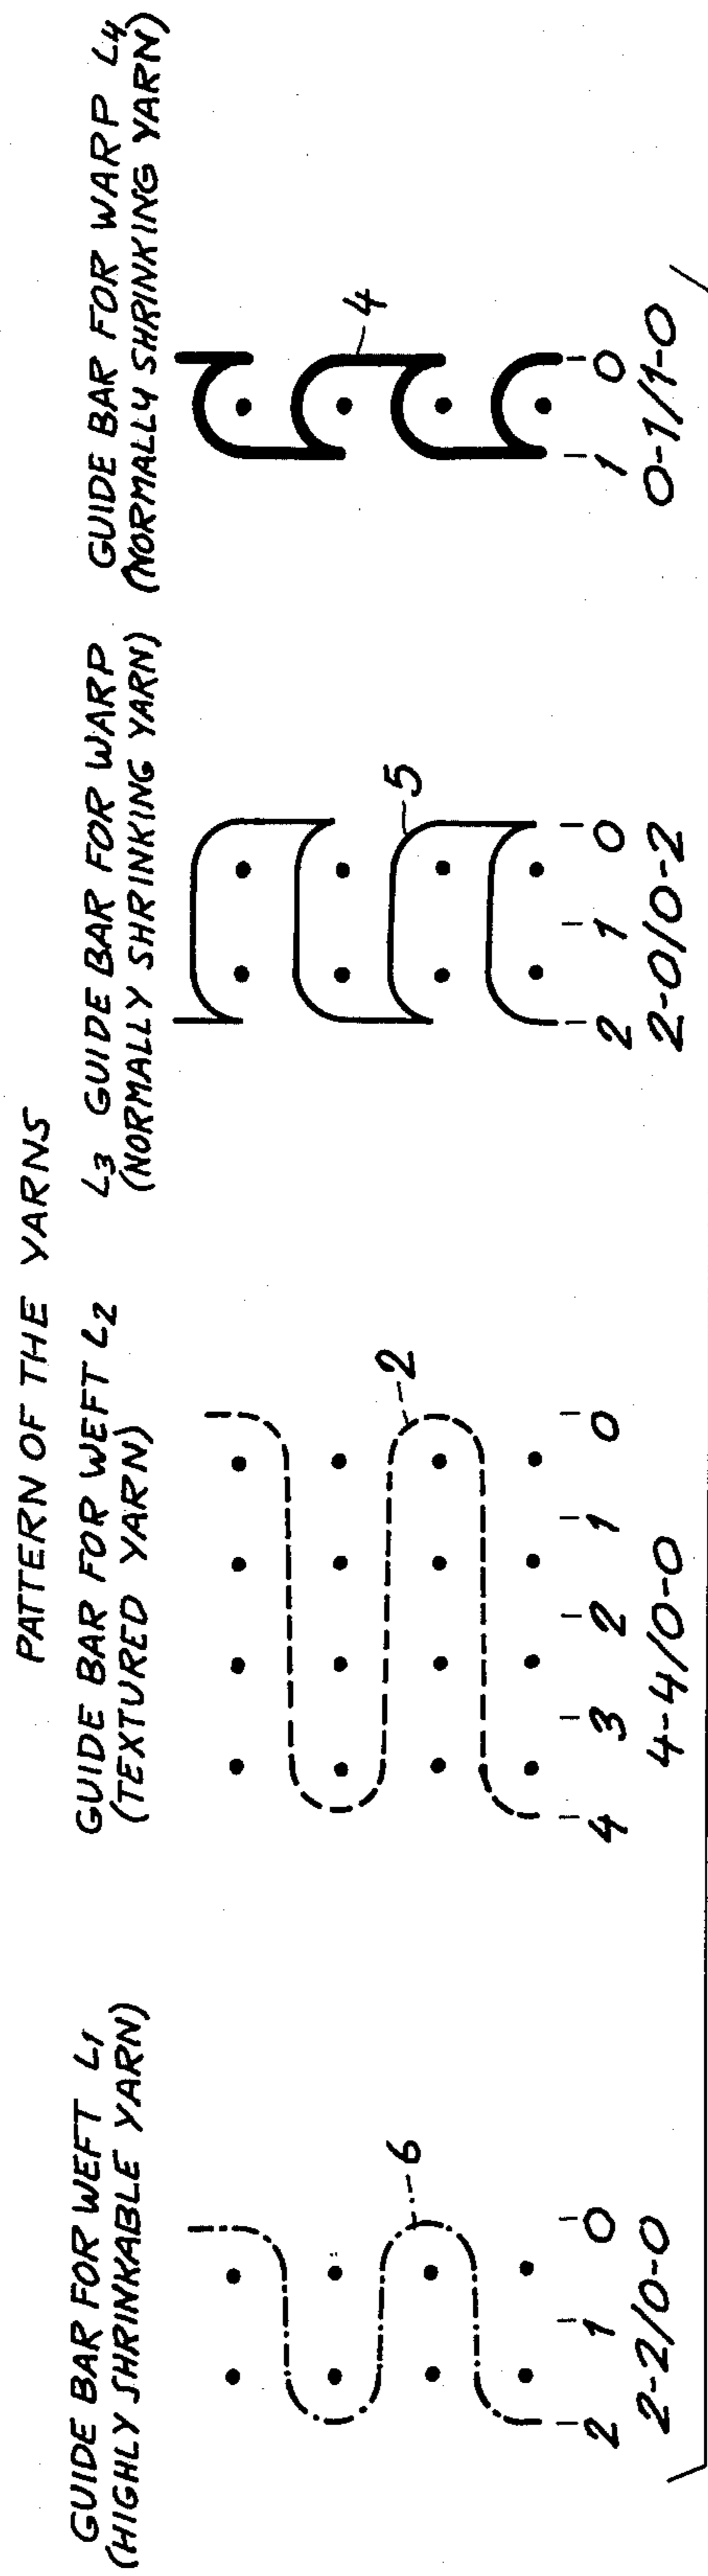 PATTERN OF THE YARNS
GUIDE BAR FOR WEFT L1
(HIGHLY SHRINKABLE YARN)
6
2 1 0
2-2/0-0
GUIDE BAR FOR WEFT L2
(TEXTURED YARN)
2
4 3 2 1 0
4-4/0-0
L3 GUIDE BAR FOR WARP
(NORMALLY SHRINKING YARN)
5
2 1 0
2-0/0-2
GUIDE BAR FOR WARP L4
(NORMALLY SHRINKING YARN)
4
1 0
0-1/1-0